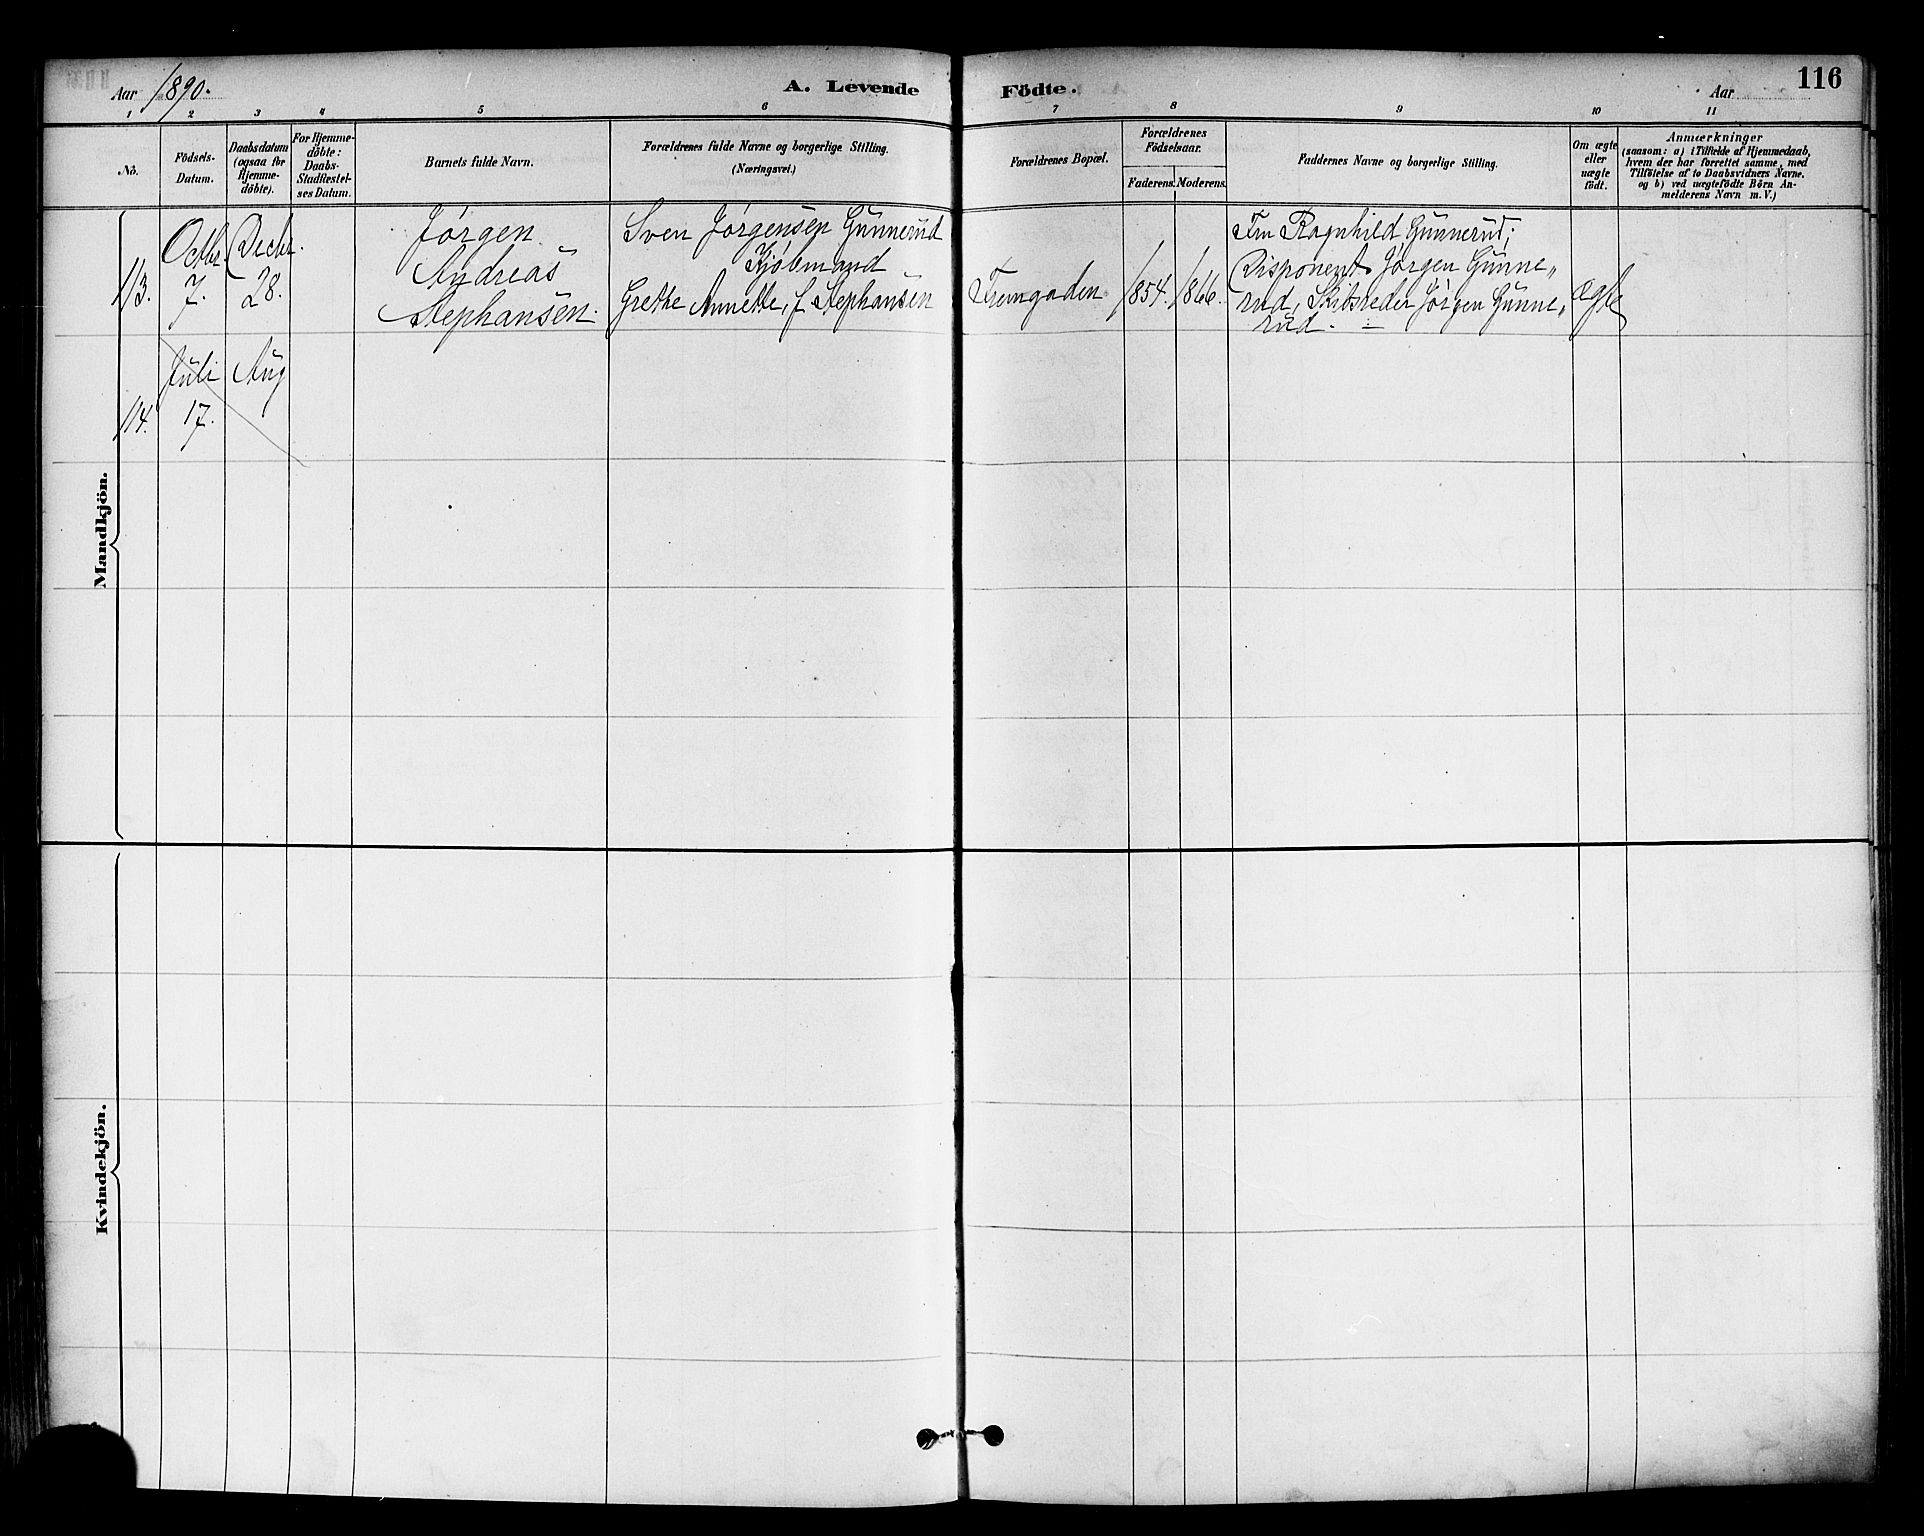 Aar 1890.
A. Levende Födte.
Aar
116
1 2 3 4 5 6 7 8 9 10 11
No.
Födsels-
Datum.
Daabsdatum
(ogsaa for
Hjemme-
döbte).
For Hjemme-
döbte:
Daabs-
Stadfestel-
ses Datum.
Barnets fulde Navn.
Forældrenes fulde Navne og borgerlige Stilling.
(Næringsvei.)
Forældrenes Bopæl.
Forældrenes
Födselsaar.
Faderens.
Moderens.
Faddernes Navne og borgerlige Stilling.
Om ægte
eller
uægte
födt.
Anmærkninger
(saasom: a) i Tilfælde af Hjemmedaab,
hvem der har forrettet samme, med
Tilföielse af to Daabsvidners Navne.
og b) ved uægtefödte Börn An-
melderens Navn m. V.)
Mandkjön.
113.
Octbr.
7.
Decbr.
28.
Jørgen
Andreas
Stephansen.
Sven Jørgensen Gunnerud
Kjøbmand
Grethe Annette, f Stephansen
1854.
1866.
Fru Ragnhild Gunnerud;
Disponent Jørgen Gunne„
rud, Skibsreder Jørgen Gunne„
rud.
ægte
114.
Juli
17.
Aug
Kvindekjön.